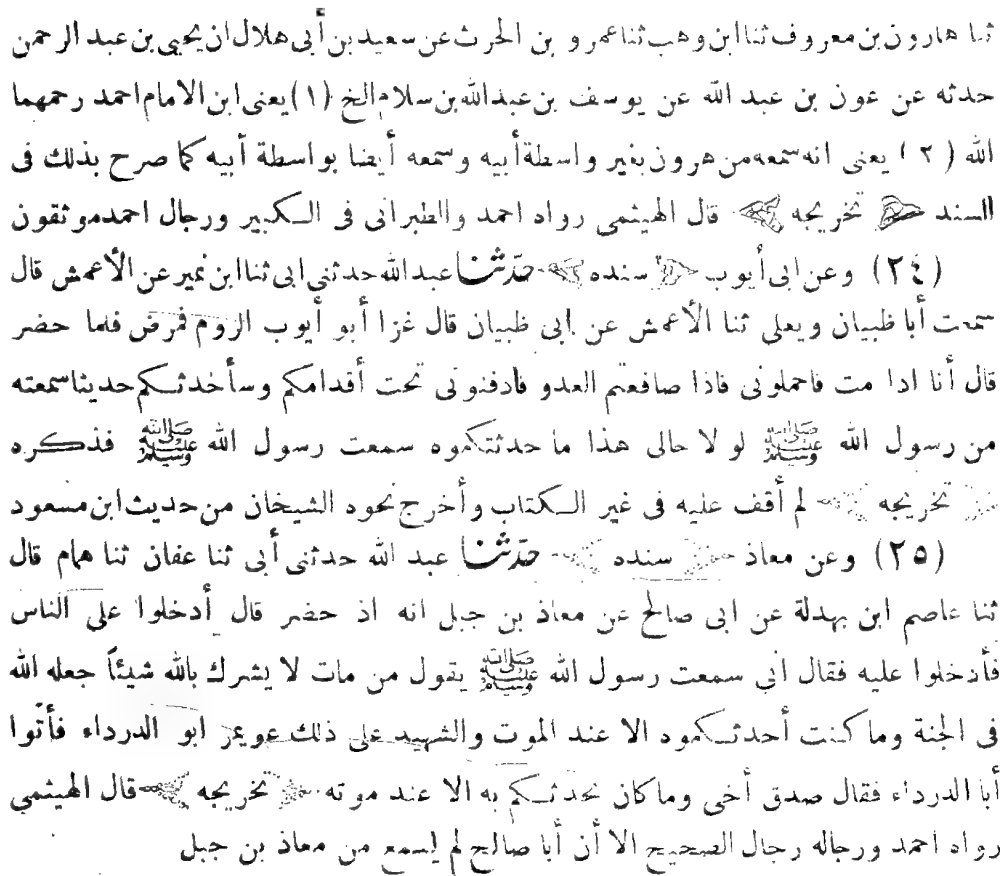 ثنا هارون بن معروف ثنا ابن وهب ثنا عمرو بن الحرث عن سعيد بن أبى هلال ان يحيى بن عبد الرحمن
حدثه عن عون بن عبد الله عن يوسف بن عبد الله بن سلام الخ (١) يعنى ابن الامام احمد رحمهما
الله (٢) يعنى انه سمعه من هرون بغير واسطة أبيه وسمعه أيضا بواسطة أبيه كما صرح بذلك فى
السند تخريجه قال الهيثمى رواه احمد والطبرانى فى الكبير ورجال احمد موثقون
(٢٤) وعن ابى أيوب سنده حدثنا عبد الله حدثنى ابى ثنا ابن نمير عن الأعمش قال
سمعت أبا ظبيان ويعلى ثنا الأعمش عن ابى ظبيان قال غزا أبو أيوب الروم فمرض فلما حضر
قال أنا اذا مت فاحملونى فاذا صافعتم العدو فادفنونى تحت أقدامكم وسأحدثكم حديثا سمعته
من رسول الله ﷺ لو لا حالى هذا ما حدثتكموه سمعت رسول الله ﷺ فذكره
تخريجه لم أقف عليه فى غير الكتاب وأخرج نحوه الشيخان من حديث ابن مسعود
(٢٥) وعن معاذ سنده حدثنا عبد الله حدثنى أبى ثنا عفان ثنا همام قال
ثنا عاصم ابن بهدلة عن ابى صالح عن معاذ بن جبل انه اذ حضر قال أدخلوا على الناس
فأدخلوا عليه فقال انى سمعت رسول الله ﷺ يقول من مات لا يشرك بالله شيئاً جعله الله
فى الجنة وما كنت أحدثكموه الا عند الموت والشهيد على ذلك عويمر ابو الدرداء فأتوا
أبا الدرداء فقال صدق أخى وما كان يحدثكم به الا عند موته تخريجه قال الهيثمى
رواه احمد ورجاله رجال الصحيح الا أن أبا صالح لم يسمع من معاذ بن جبل